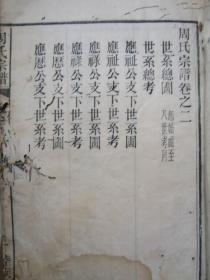 周氏宗譜卷之二
世系總圖
世系總考
應祉公支下世系圖
應祉公支下世系考
應祿公支下世系圖
應祿公支下世系考
應歷公支下世系圖
應歷公支下世系考
周氏宗譜